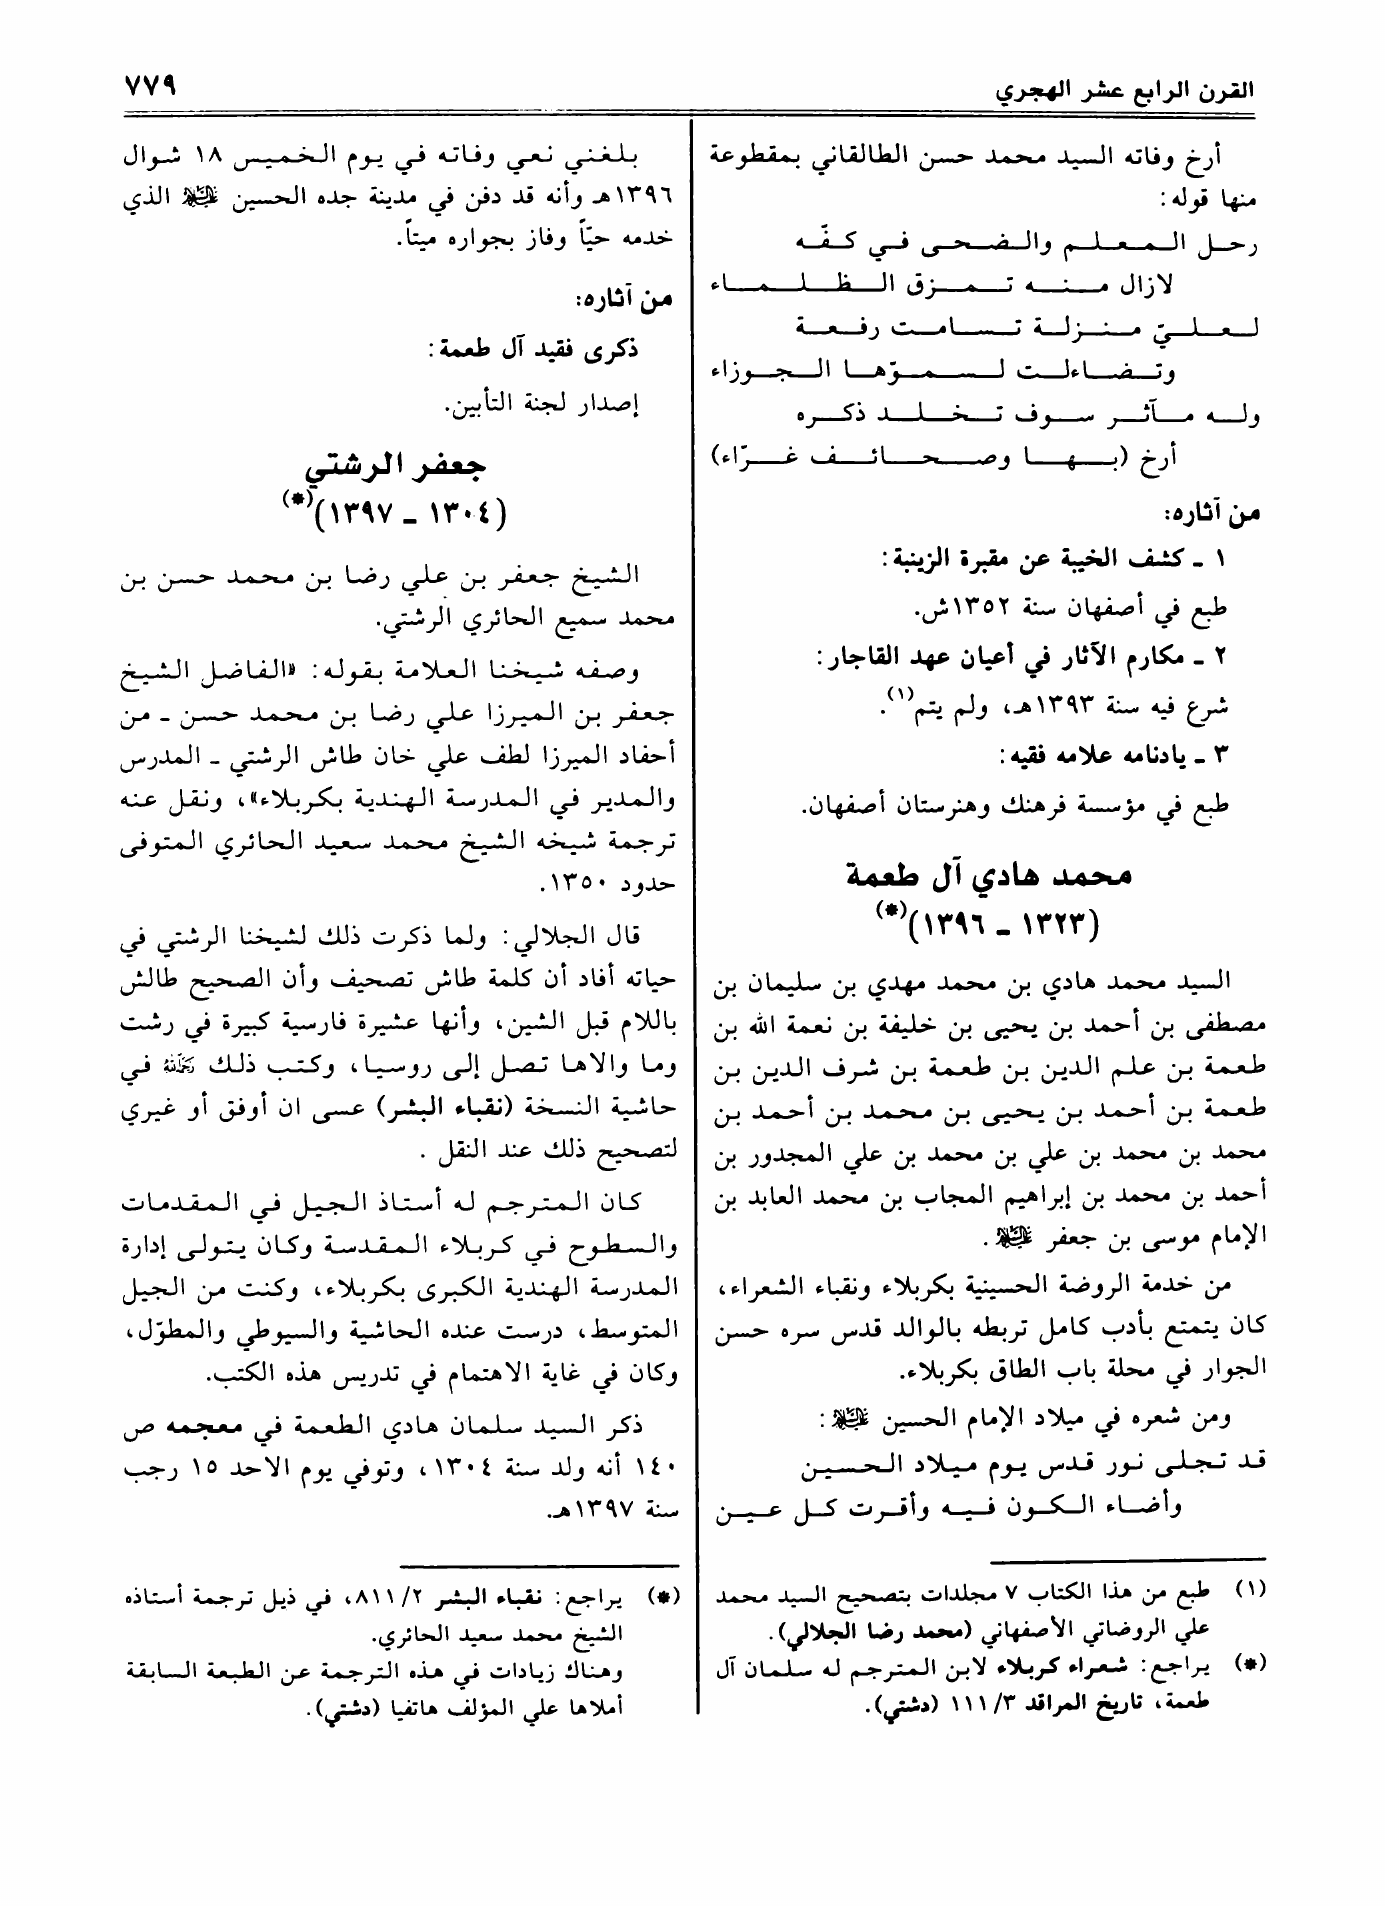 القرن الرابع عشر الهجري
٧٧٩
أرخ وفاته السيد محمد حسن الطالقاني بمقطوعة
منها قوله:
رحل المعلم والضحى في كفّه
لازال منه تمزق الظلماء
لعليّ منزلة تسامت رفعة
وتضاءلت لسموّها الجوزاء
وله مآثر سوف تخلد ذكره
أرخ (بها وصحائف غرّاء)
من آثاره:
١ ـ كشف الخيبة عن مقبرة الزينبة:
طبع في أصفهان سنة ١٣٥٢ش.
٢ ـ مكارم الآثار في أعيان عهد القاجار:
شرع فيه سنة ١٣٩٣هـ، ولم يتم(١).
٣ ـ يادنامه علامه فقيه:
طبع في مؤسسة فرهنك وهنرستان أصفهان.
محمد هادي آل طعمة
(١٣٢٣ ـ ١٣٩٦)(*)
السيد محمد هادي بن محمد مهدي بن سليمان بن
مصطفى بن أحمد بن يحيى بن خليفة بن نعمة الله بن
طعمة بن علم الدين بن طعمة بن شرف الدين بن
طعمة بن أحمد بن يحيى بن محمد بن أحمد بن
محمد بن محمد بن علي بن محمد بن علي المجدور بن
أحمد بن محمد بن إبراهيم المجاب بن محمد العابد بن
الإمام موسى بن جعفر عليه السلام.
من خدمة الروضة الحسينية بكربلاء ونقباء الشعراء،
كان يتمتع بأدب كامل تربطه بالوالد قدس سره حسن
الجوار في محلة باب الطاق بكربلاء.
ومن شعره في ميلاد الإمام الحسين عليه السلام:
قد تجلى نور قدس يوم ميلاد الحسين
وأضاء الكون فيه وأقرت كل عين
(١) طبع من هذا الكتاب ٧ مجلدات بتصحيح السيد محمد
علي الروضاتي الأصفهاني (محمد رضا الجلالي).
(*) يراجع: شعراء كربلاء لابن المترجم له سلمان آل
طعمة، تاريخ المراقد ٣/ ١١١ (دشتي).
بلغني نعي وفاته في يوم الخميس ١٨ شوال
١٣٩٦هـ وأنه قد دفن في مدينة جده الحسين عليه السلام الذي
خدمه حيّاً وفاز بجواره ميتاً.
من آثاره:
ذكرى فقيد آل طعمة:
إصدار لجنة التأبين.
جعفر الرشتي
(١٣٠٤ ـ ١٣٩٧)(*)
الشيخ جعفر بن علي رضا بن محمد حسن بن
محمد سميع الحائري الرشتي.
وصفه شيخنا العلامة بقوله: «الفاضل الشيخ
جعفر بن الميرزا علي رضا بن محمد حسن ـ من
أحفاد الميرزا لطف علي خان طاش الرشتي ـ المدرس
والمدير في المدرسة الهندية بكربلاء»، ونقل عنه
ترجمة شيخه الشيخ محمد سعيد الحائري المتوفى
حدود ١٣٥٠.
قال الجلالي: ولما ذكرت ذلك لشيخنا الرشتي في
حياته أفاد أن كلمة طاش تصحيف وأن الصحيح طالش
باللام قبل الشين، وأنها عشيرة فارسية كبيرة في رشت
وما والاها تصل إلى روسيا، وكتب ذلك رحمه الله في
حاشية النسخة (نقباء البشر) عسى ان أوفق أو غيري
لتصحيح ذلك عند النقل .
كان المترجم له أستاذ الجيل في المقدمات
والسطوح في كربلاء المقدسة وكان يتولى إدارة
المدرسة الهندية الكبرى بكربلاء، وكنت من الجيل
المتوسط، درست عنده الحاشية والسيوطي والمطوّل،
وكان في غاية الاهتمام في تدريس هذه الكتب.
ذكر السيد سلمان هادي الطعمة في معجمه ص
١٤٠ أنه ولد سنة ١٣٠٤، وتوفي يوم الاحد ١٥ رجب
سنة ١٣٩٧هـ.
(*) يراجع: نقباء البشر ٢/ ٨١١، في ذيل ترجمة أستاذه
الشيخ محمد سعيد الحائري.
وهناك زيادات في هذه الترجمة عن الطبعة السابقة
أملاها علي المؤلف هاتفيا (دشتي).